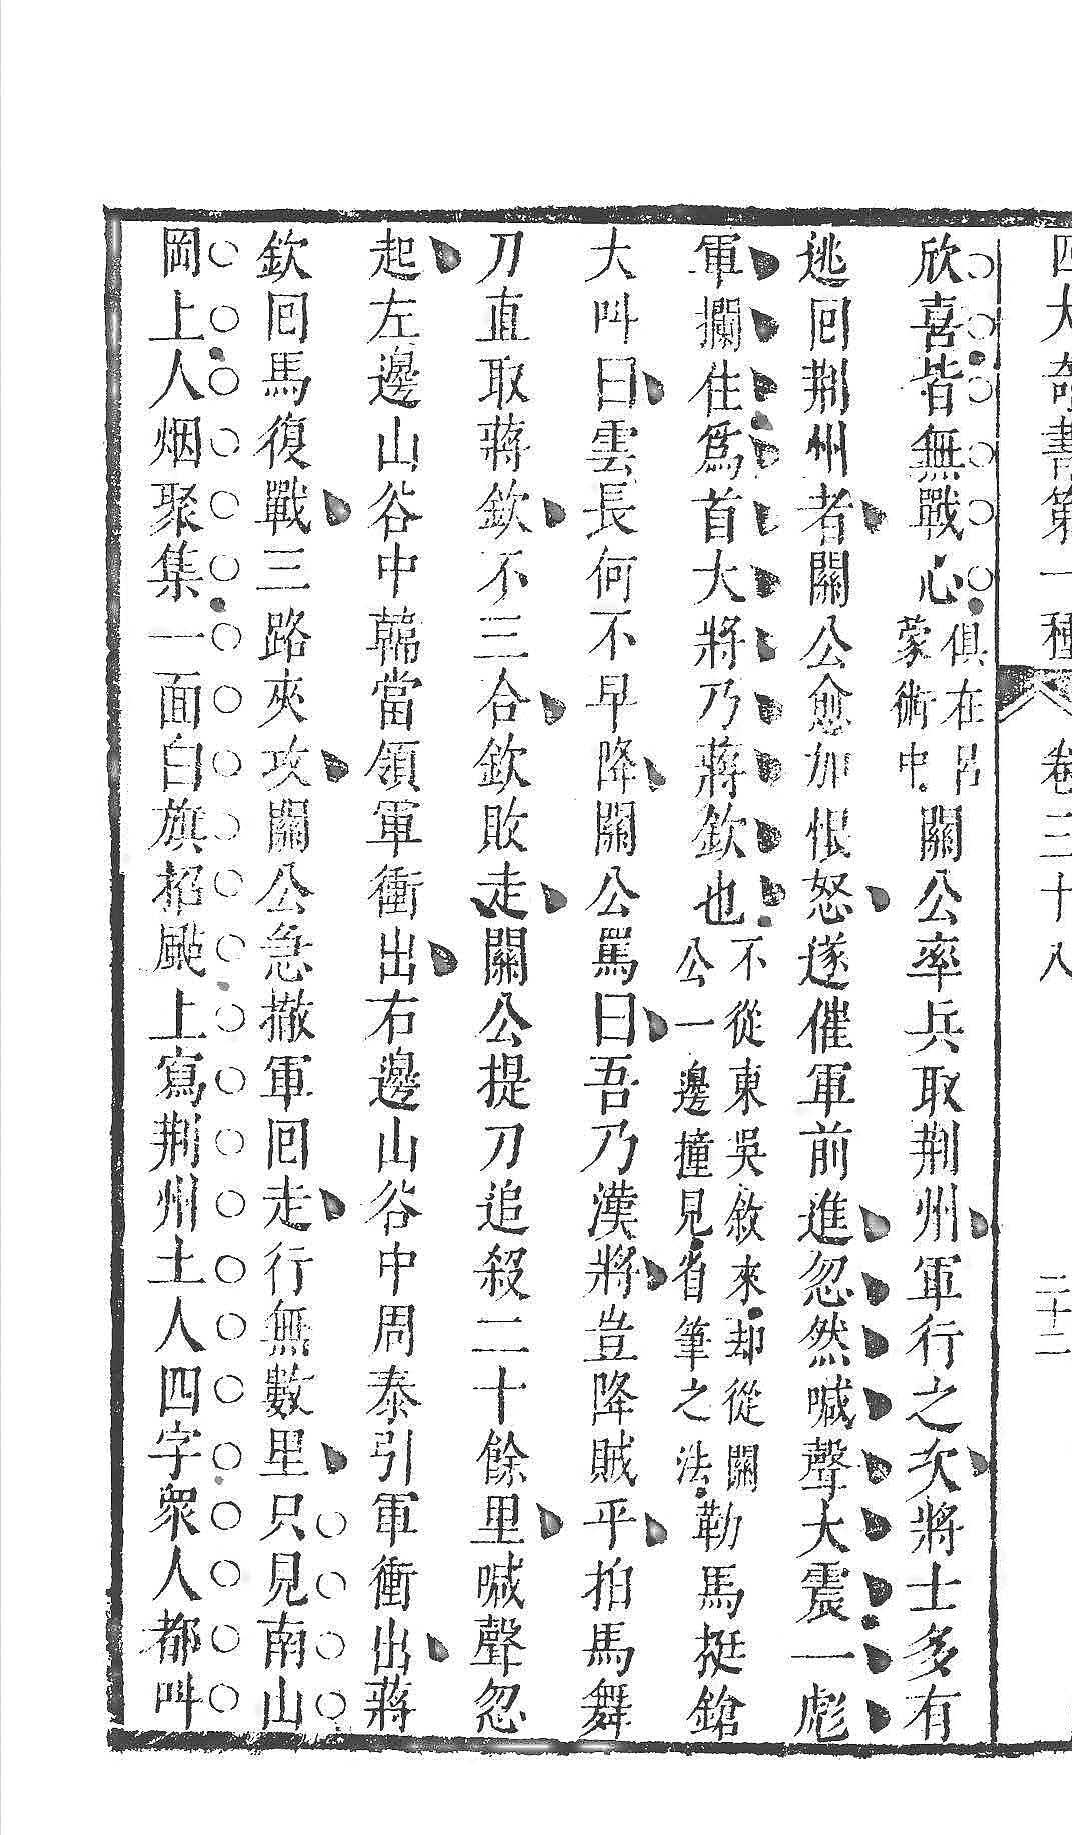 四大奇書第一種 卷三十八 二十二
欣喜皆無戰心俱在呂蒙術中關公率兵取荆州軍行之次將士多有
逃囘荆州者關公愈加恨怒遂催軍前進忽然喊聲大震一彪
軍攔住爲首大將乃蔣欽也不從東吳敘來却從關公一邊撞見省筆之法勒馬挺鎗
大叫曰雲長何不早降關公罵曰吾乃漢將豈降賊乎拍馬舞
刀直取蔣欽不三合欽敗走關公提刀追殺二十餘里喊聲忽
起左邊山谷中韓當領軍衝出右邊山谷中周泰引軍衝出蔣
欽囘馬復戰三路夾攻關公急撤軍囘走行無數里只見南山
岡上人烟聚集一面白旗招颭上寫荆州土人四字衆人都叫